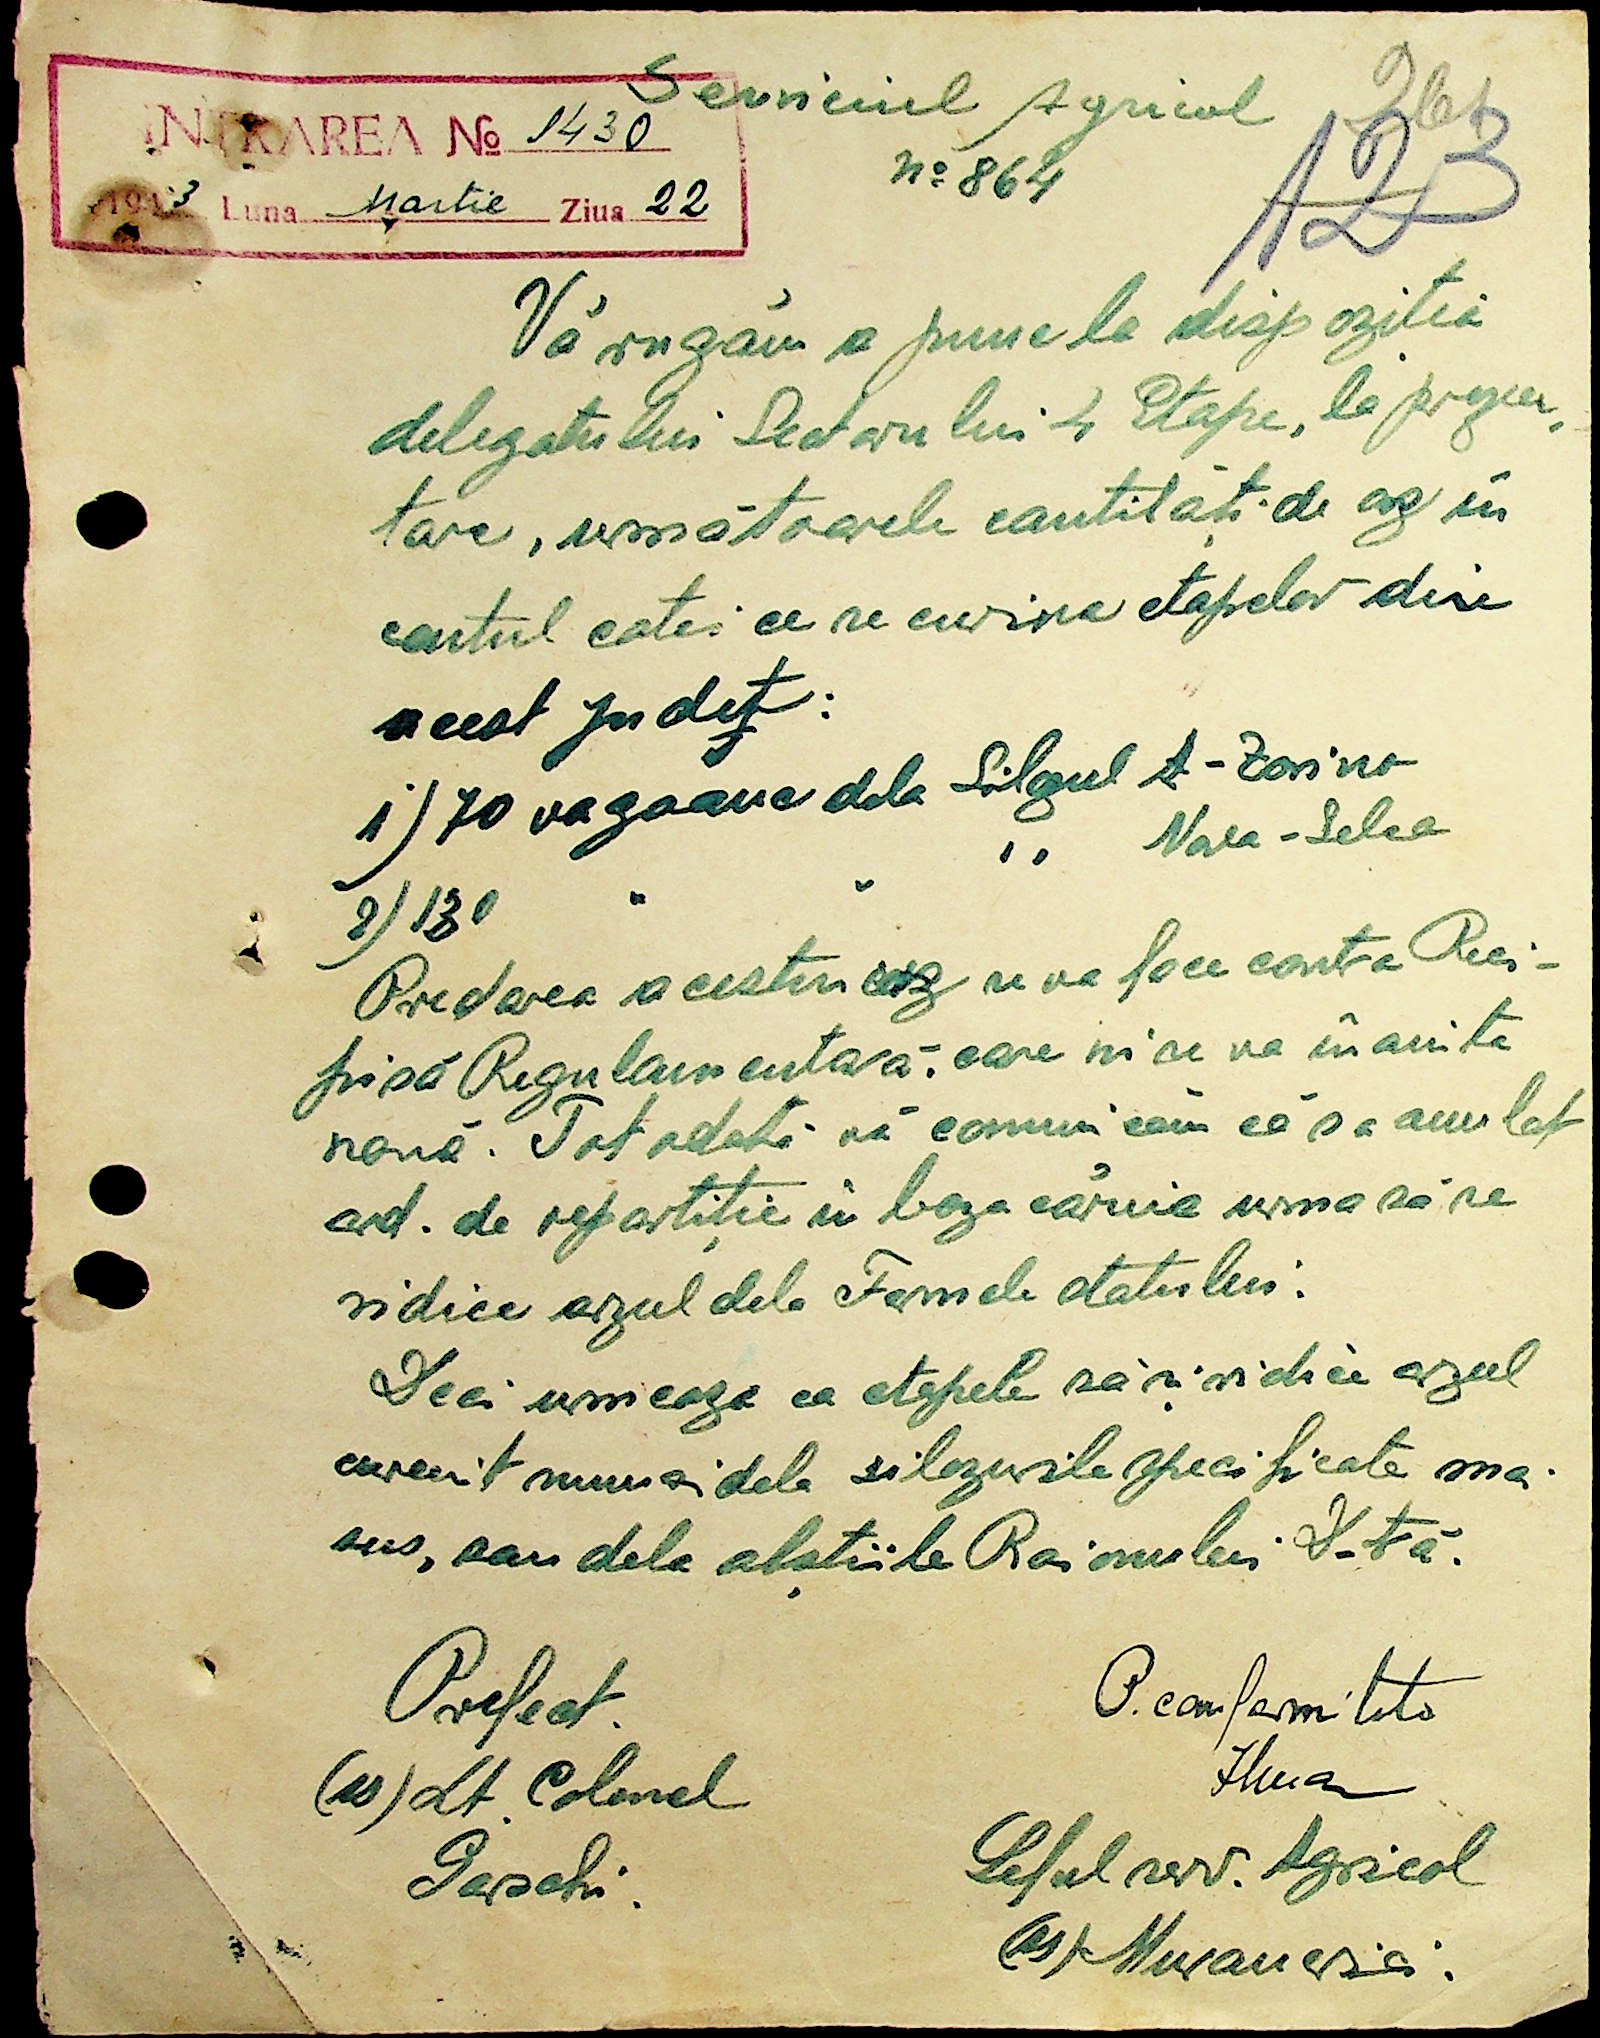 Serviciul Agricol
INTRAREA № 1430
No 864
123
1943 Luna Martie Ziua 22
Vă rugăm a pune la dispoziția
delegatului Sectorului 4 Etape, la prezen-
tare, următoarele cantități de orz în
contul cotei ce se cuvine etapelor din
acest județ:
1) 70 vagoane dela Silozul A-Zorino
2) 130 " " " Nova-Selca
Predarea acestui orz se va face contra Reci-
pisă Regulamentară, care ni se va înainta
nouă. Tot odată vă comunicăm că s'a anulat
ord. de repartiție în baza căruia urma să se
ridice orzul dela Fermele statului.
Deci urmeaza ca etapele să-și ridice orzul
cuvenit numai dela silozurile specificate mai
sus, sau dela obștiile Raionului D-tră.
Prefect.
(ss) Lt. Colonel
P. conformitate
Șeful serv. Agricol
(ss)